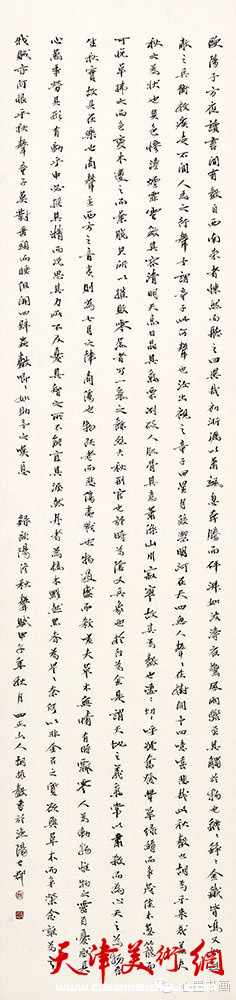 歐陽子方夜讀書聞有聲自西南來者悚然而聽之曰異哉初淅瀝以蕭颯忽奔騰而砰湃如波濤夜驚風雨驟至其觸於物也鏦鏦錚錚金鐵皆鳴又如赴
敵之兵銜枚疾走不聞人馬之行聲予謂童子此何聲也汝出視之童子曰星月皎潔明河在天四無人聲聲在樹間予曰噫嘻悲哉此秋聲也胡為乎來哉蓋夫
秋之為狀也其色慘淡煙霏雲斂其容清明天高日晶其氣慄冽砭人肌骨其意蕭條山川寂寥故其為聲也淒淒切切呼號奮發豐草綠縟而爭茂佳木蔥籠而
可悅草拂之而色變木遭之而葉脫其所以摧敗零落者乃一氣之餘烈夫秋刑官也於時為陰又兵象也於行為金是謂天地之義氣常以肅殺而為心天之於物春
生秋實故其在樂也商聲主西方之音夷則為七月之律商傷也物既老而悲傷夷戮也物過盛而當殺嗟夫草木無情有時飄零人為動物惟物之靈百憂感其
心萬事勞其形有動乎中必搖其精而況思其力之所不及憂其智之所不能宜其渥然丹者為槁木黟然黑者為星星奈何以非金石之質欲與草木而爭榮念誰為之
戕賊亦何恨乎秋聲童子莫對垂頭而睡但聞四壁蟲聲唧唧如助予之嘆息
錄歐陽修秋聲賦甲子年秋月四正山人胡 書於漁陽
天津美術網